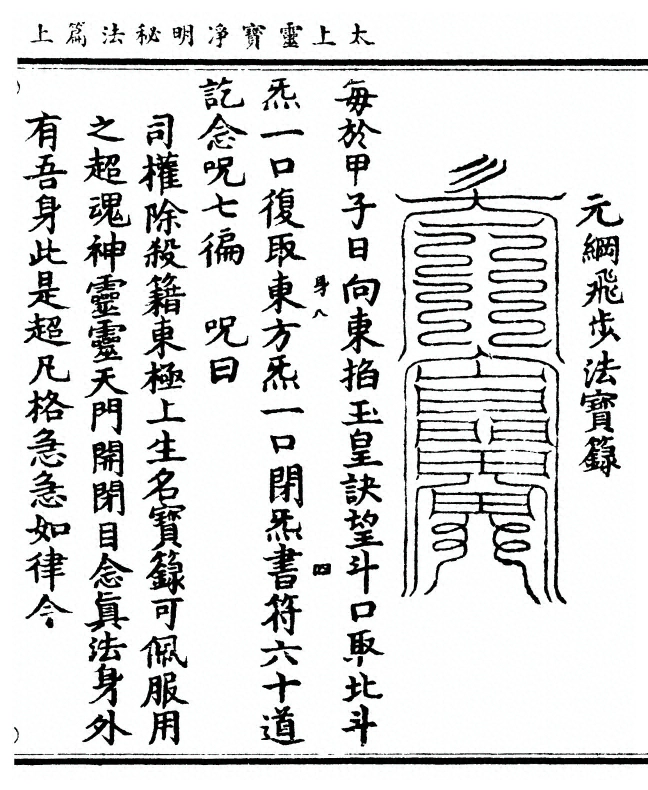 太上靈寶淨明秘法篇上
元綱飛步法寶籙
每於甲子日向東掐玉皇訣望斗口取北斗
炁一口復取東方炁一口閉炁書符六十道
訖念呪七徧　呪曰
司權除殺籍東極上生名寶籙可佩服用
之超魂神靈靈天門開閉目念眞法身外
有吾身此是超凡格急急如律令
身八
四